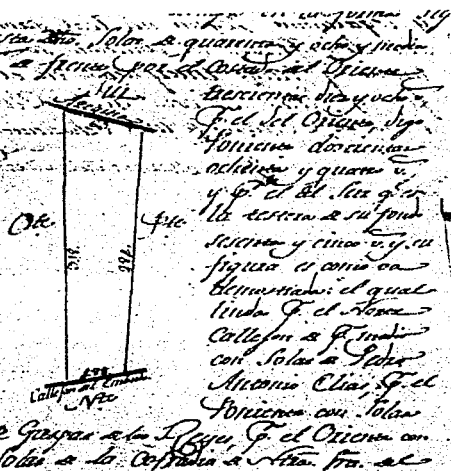 esta dho. Solar de quarenta y ocho y media
de frente por el Costado del Oriente
trescientas diez y ocho,
P. el del Oriente, digo
Poniente doscientas
ochenta y quatro v.
y P. el del Sur q. es
la tersera de su fondo
sesenta y cinco v. y su
figura es como va
demostrada: el qual
linda P. el Norte
Callejon de P. medio
con Solar de Pedro
Antonio Elias, P. el
Poniente con Solar
de Gaspar de los Reyes, P. el Oriente con
Solar de la Cofradia de Ntra. Sra. del
Sur
Ote
Pte
318
284
Callejon del
Nte